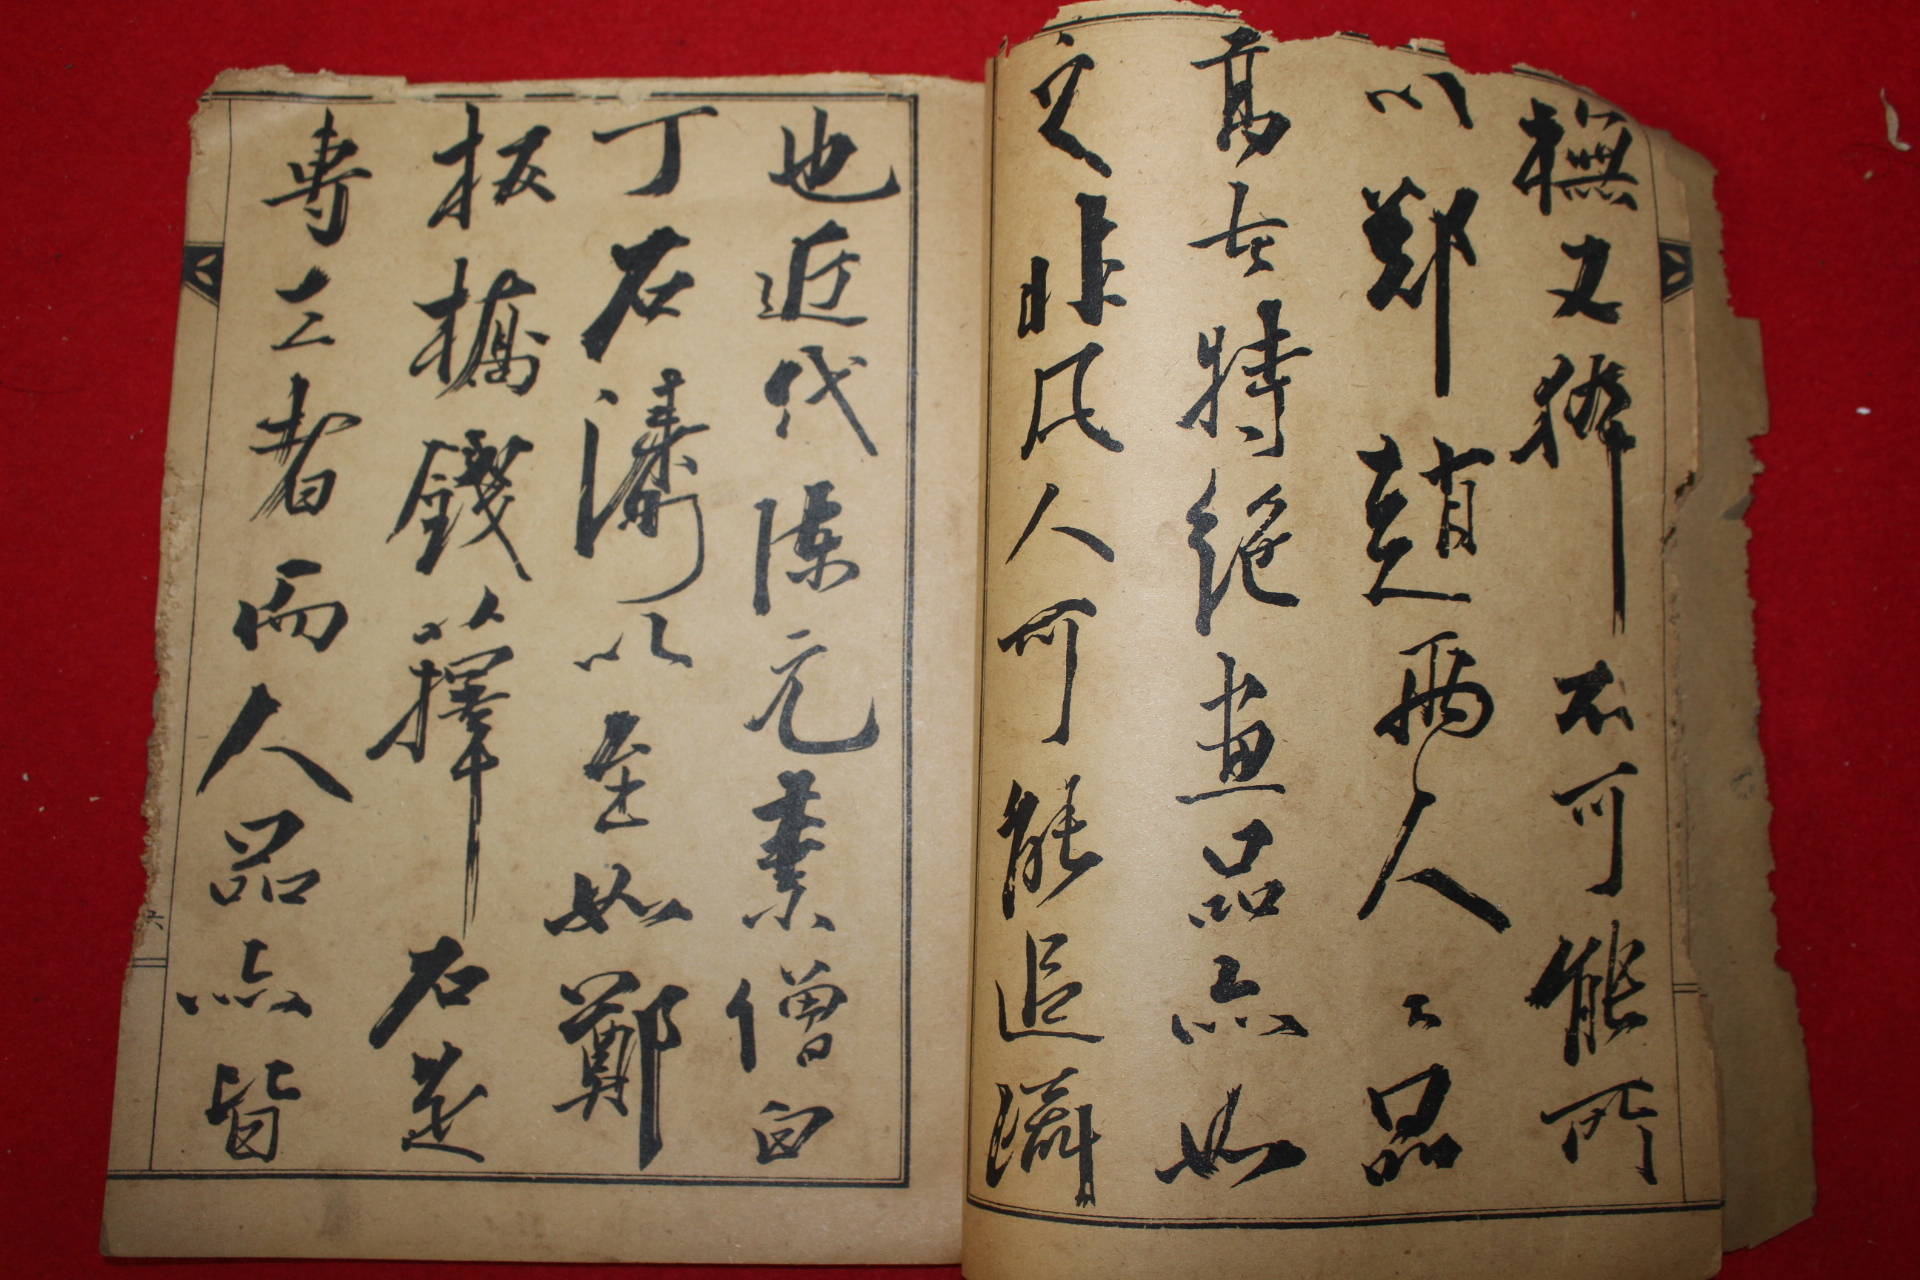 橅又不可能所
以鄭趙兩人々品
高古特絕畫品亦如
之非凡人可能追躡
也近代陳元素僧白
丁石濤以至如鄭
板橋錢蘀石是
專工者而人品亦皆
六